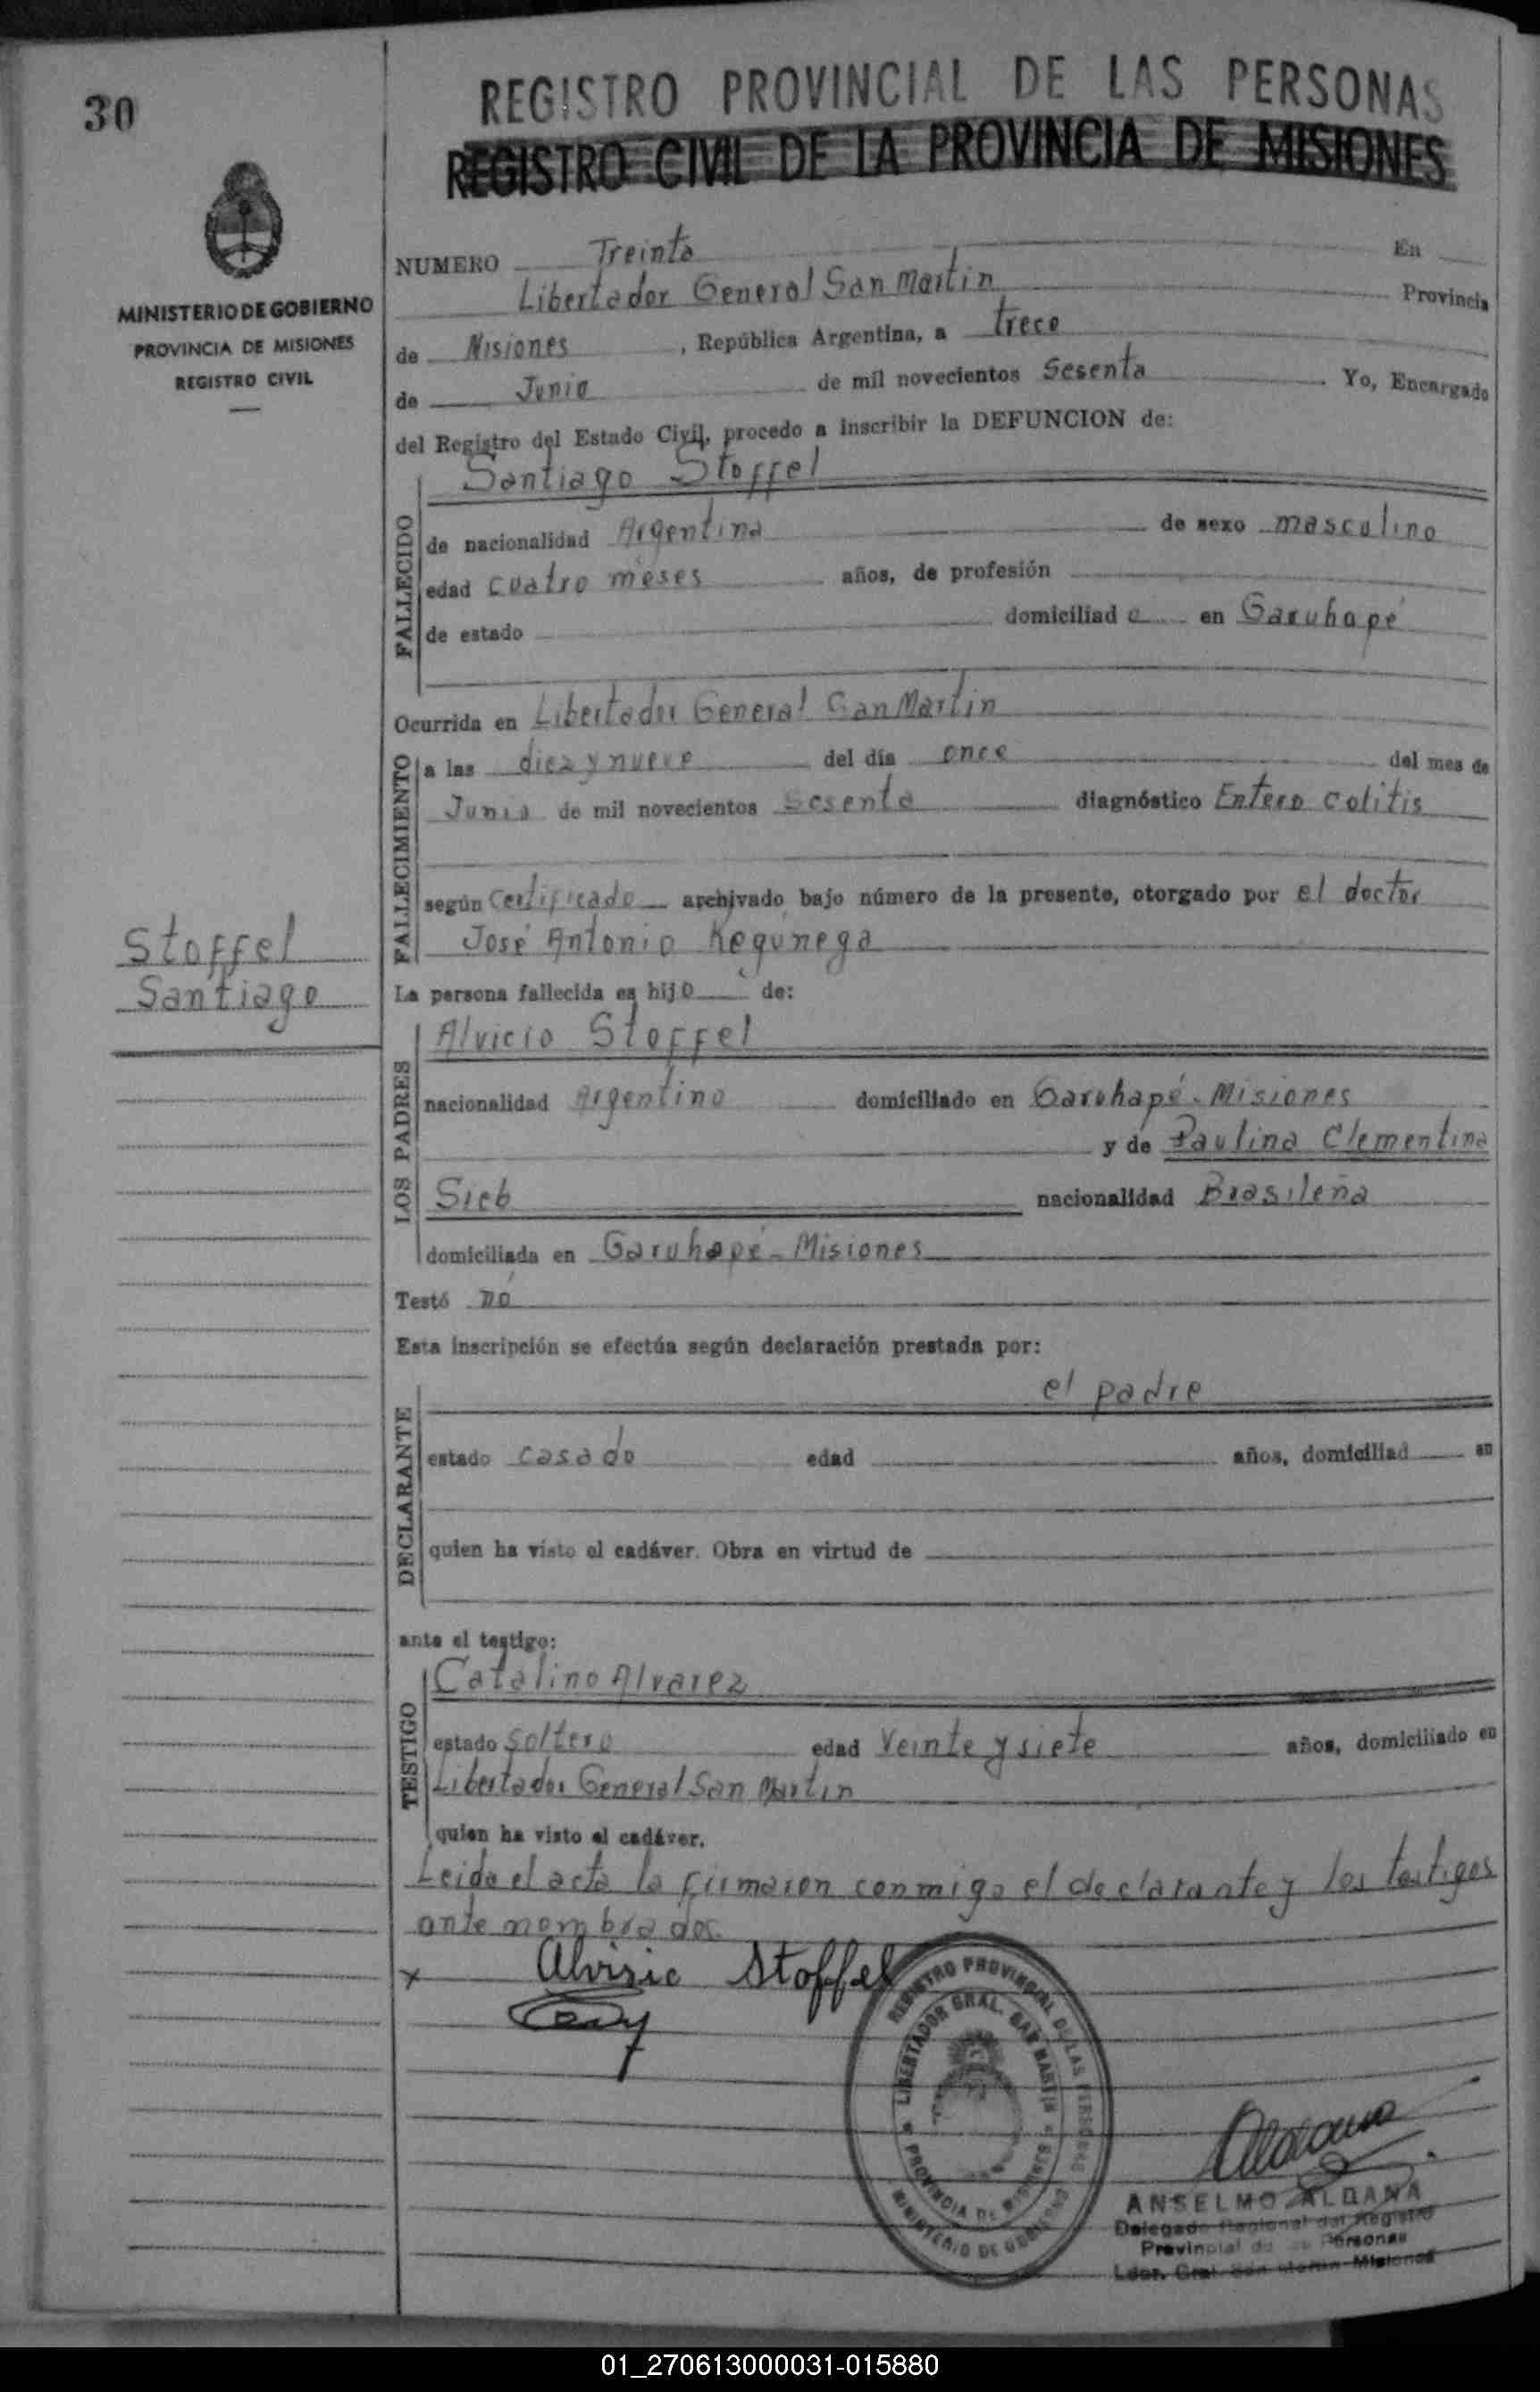 30
REGISTRO PROVINCIAL DE LAS PERSONAS
REGISTRO CIVIL DE LA PROVINCIA DE MISIONES
MINISTERIO DE GOBIERNO
PROVINCIA DE MISIONES
REGISTRO CIVIL
NUMERO Treinta En
Libertador General San Martin Provincia
de Misiones, República Argentina, a trece
de Junio de mil novecientos Sesenta Yo, Encargado
del Registro del Estado Civil, procedo a inscribir la DEFUNCION de:
Santiago Stoffel
FALLECIDO
de nacionalidad Argentina de sexo masculino
edad cuatro meses años, de profesión
de estado domiciliado en Garuhapé
Ocurrida en Libertador General San Martin
FALLECIMIENTO
a las diez y nueve del día once del mes de
Junio de mil novecientos Sesenta diagnóstico Entero colitis
según Certificado archivado bajo número de la presente, otorgado por el doctor
José Antonio
Stoffel
Santiago
La persona fallecida es hijo de:
Alvicio Stoffel
LOS PADRES
nacionalidad Argentino domiciliado en Garuhapé - Misiones
y de Paulina Clementina
Sieb nacionalidad Brasileña
domiciliada en Garuhapé - Misiones
Testó nó
Esta inscripción se efectúa según declaración prestada por:
el padre
DECLARANTE
estado casado edad años, domiciliad en
quien ha visto el cadáver. Obra en virtud de
ante el testigo:
Catalino Alvarez
TESTIGO
estado Soltero edad Veinte y siete años, domiciliado en
Libertador General San Martin
quien ha visto el cadáver.
Leida el acta la firmaron conmigo el declarante y los testigos
ante nombrados
x Alvisio Stoffel
REGISTRO PROVINCIAL DE LAS PERSONAS
LIBERTADOR GRAL. SAN MARTIN
PROVINCIA DE MISIONES
MINISTERIO DE GOBIERNO
ANSELMO ALDANA
Delegado Regional del Registro
Provincial de las Personas
Ldor. Gral. San Martin Misiones
01_270613000031-015880